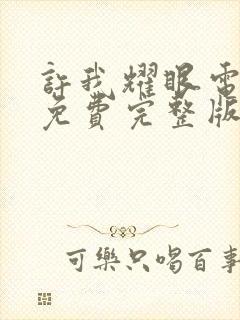 許我耀眼電
免費完整版
可樂只喝百事